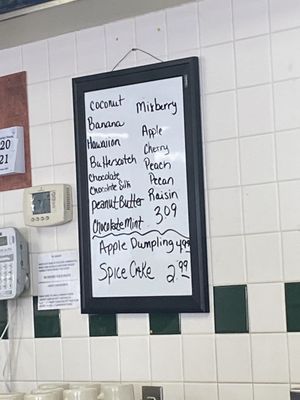 coconut Mixberry
Banana
Hawaiian Apple
Butterscotch Cherry
Chocolate Peach
Chocolate Silk Pecan
peanut Butter Raisin
Chocolate Mint 3.09
Apple Dumpling 4.99
Spice Cake 2.99
20
21